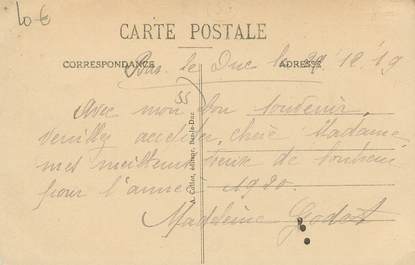 10 €
CARTE POSTALE
CORRESPONDANCE ADRESSE
Bar le Duc le 29 12 19
55
Avec mon bon souvenir
veuillez accepter, chère Madame
mes meilleurs vœux de bonheur
pour l'année 1920.
Madeleine Godart
A. Collot, éditeur, Bar-le-Duc